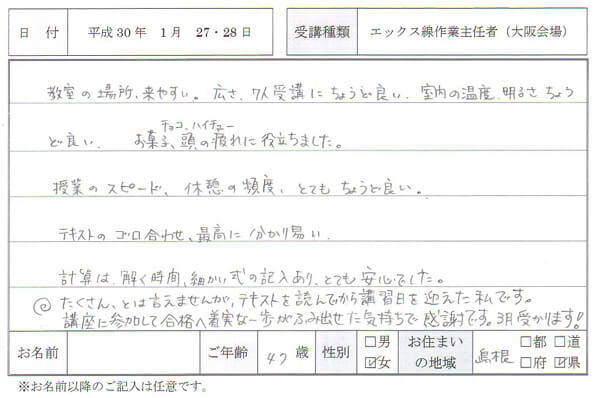 日 付 平成30年 1月 27・28日 受講種類 エックス線作業主任者（大阪会場）
教室の場所、来やすい。広さ、7人受講にちょうど良い、室内の温度、明るさちょう
チョコ、ハイチュー
ど良い、 お菓子、頭の疲れに役立ちました。
授業のスピード、休憩の頻度、とてもちょうど良い。
テキストのゴロ合わせ、最高に分かり易い、
計算は、解く時間、細かい式の記入あり、とても安心でした。
たくさん、とは言えませんが、テキストを読んでから講習日を迎えた私です。
講座に参加して合格へ着実な一歩がふみ出せた気持ちで感謝です。3月受かります!
お名前 ご年齢 47歳 性別 □男 ☑女 お住まいの地域 島根 □都 □道 □府 ☑県
※お名前以降のご記入は任意です。